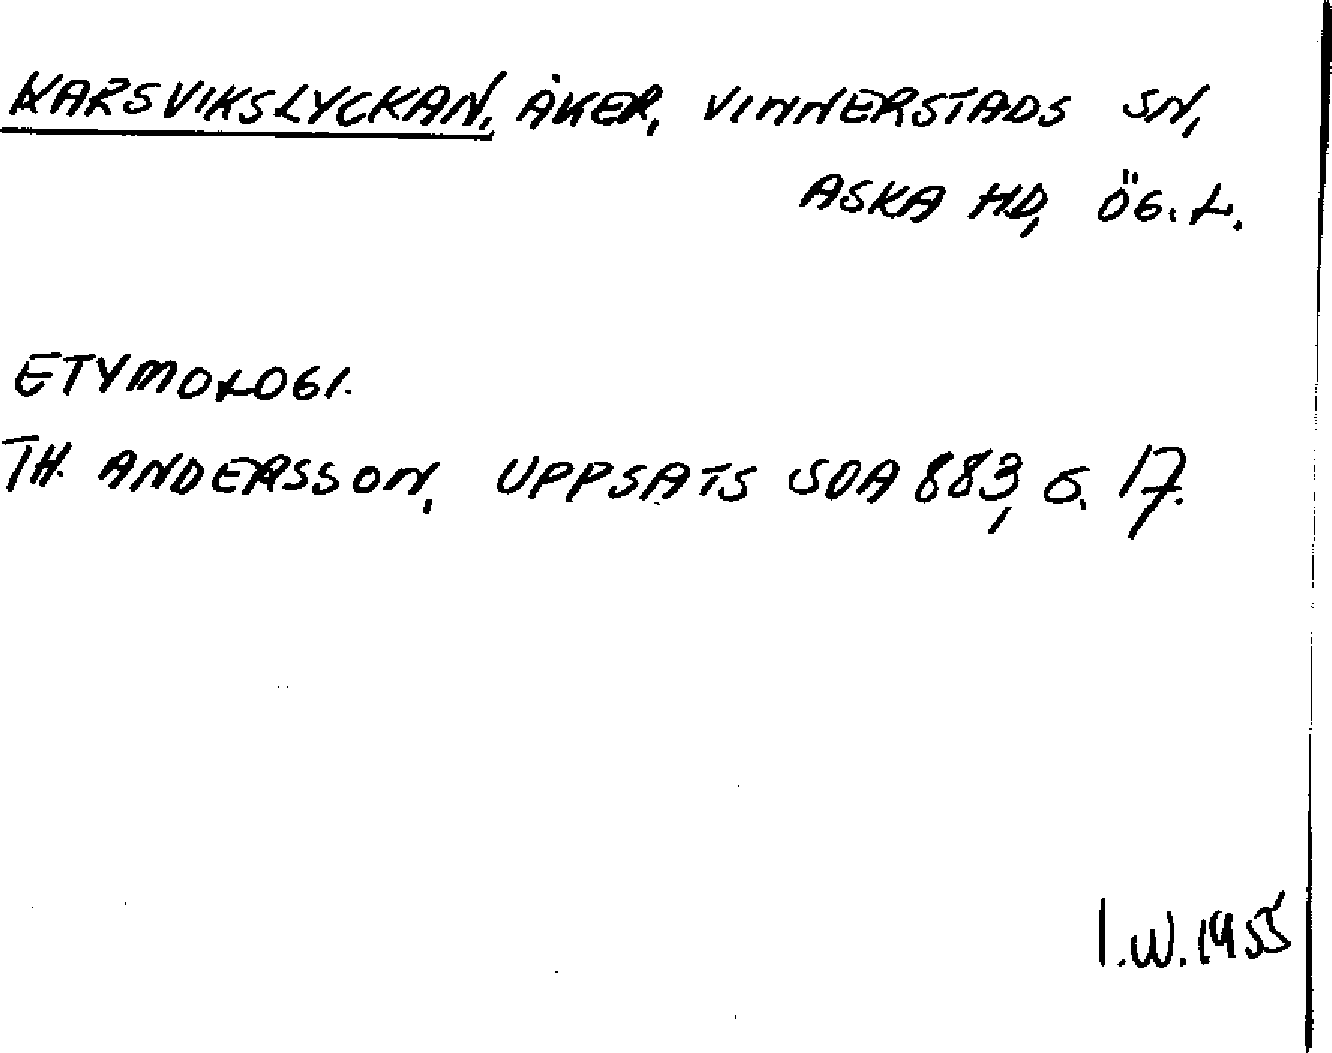 KARSVIKSLYCKAN, ÅKER, VINNERSTADS SN,
ASKA HD, ÖG. L.
ETYMOLOGI.
TH. ANDERSSON, UPPSATS SOA 883, S. 17.
I.W. 1955